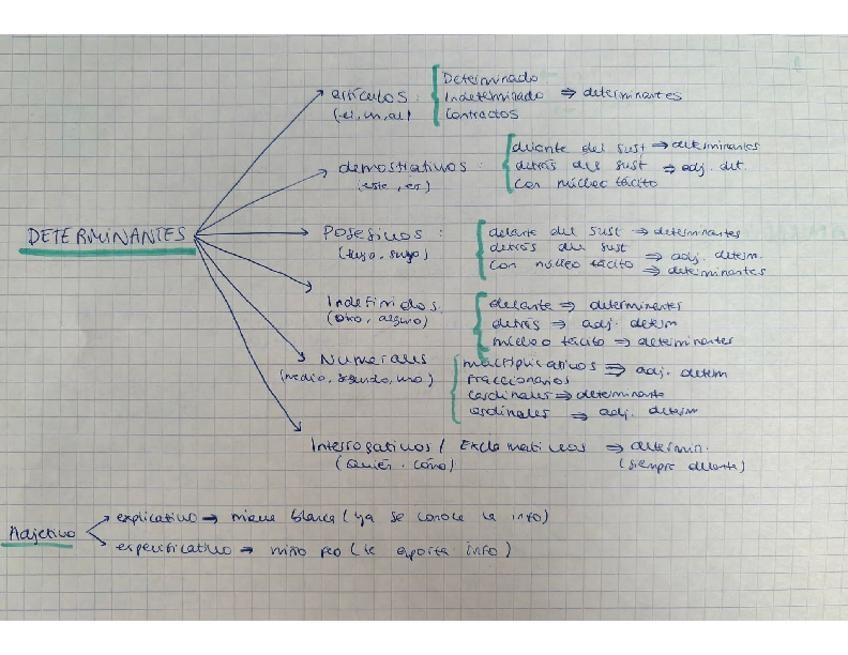 DETERMINANTES
artículos :
(el, un, al)
Determinado
Indeterminado ⇒ determinantes
Contractos
demostrativos :
(este, es)
delante del sust ⇒ determinantes
detrás del sust ⇒ adj. det.
Con núcleo tácito
Posesivos :
(tuyo, suyo)
delante del sust ⇒ determinantes
detrás del sust
con núcleo tácito ⇒ adj. determ.
⇒ determinantes
Indefinidos
(otro, alguno)
delante ⇒ determinantes
detrás ⇒ adj. determ
núcleo tácito ⇒ determinantes
Numerales
(medio, segundo, uno)
multiplicativos ⇒ adj. determ
fraccionarios
cardinales ⇒ determinante
ordinales ⇒ adj. determ
Interrogativos / Exclamativos ⇒ determin.
(Quién, cómo) (siempre delante)
Adjetivo
explicativo → nieve blanca (ya se conoce la info)
especificativo → niño feo (te aporta info)